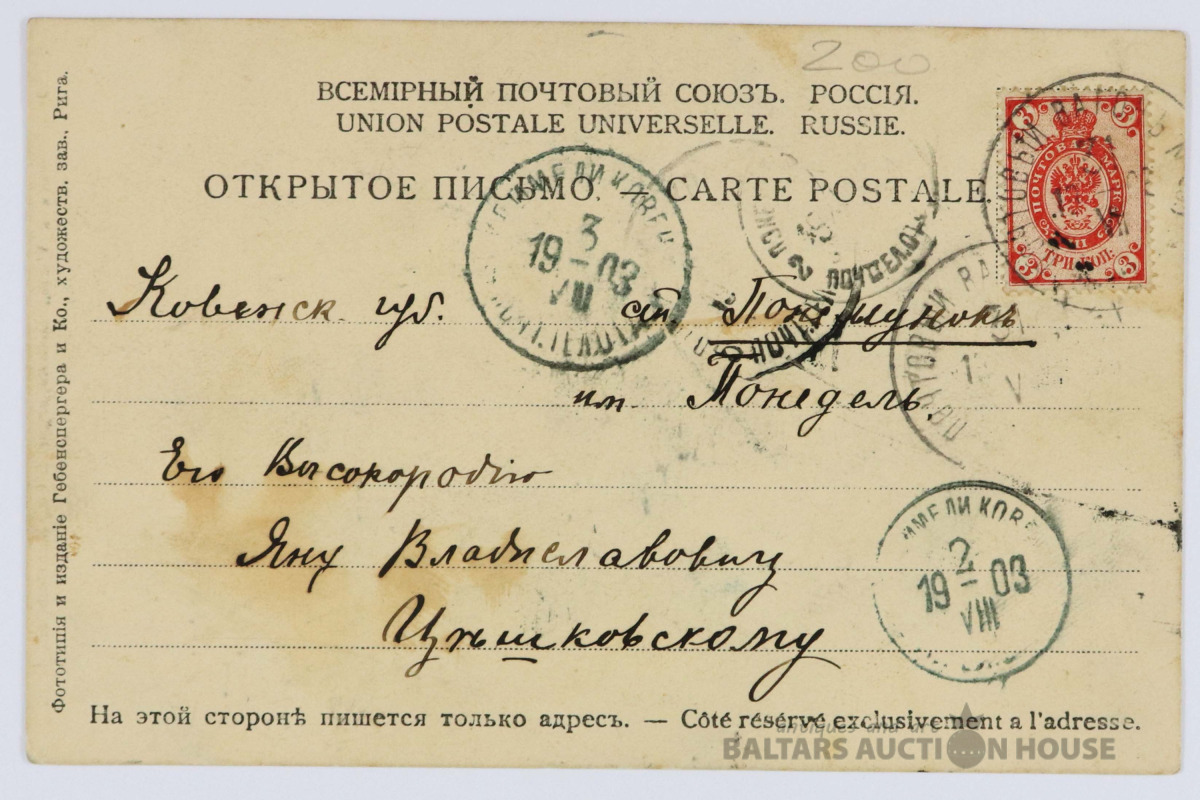 200
ВСЕМІРНЫЙ ПОЧТОВЫЙ СОЮЗЪ. РОССІЯ.
UNION POSTALE UNIVERSELLE. RUSSIE.
ОТКРЫТОЕ ПИСЬМО. — CARTE POSTALE.
3 3
ПОЧТОВАЯ МАРКА
ТРИ КОП.
3 3
3
19 – 03
VIII
Ковенск губ. ст. Понемунокъ
им. Понедель.
Его Высокородію
Яну Владиславовичу
Цѣшковскому
2
19 – 03
VIII
На этой сторонѣ пишется только адресъ. — Côté réservé exclusivement a l'adresse.
Фототипія и изданіе Гебенспергера и Ко., художеств. зав., Рига.
antiques and art
BALTARS AUCTION HOUSE